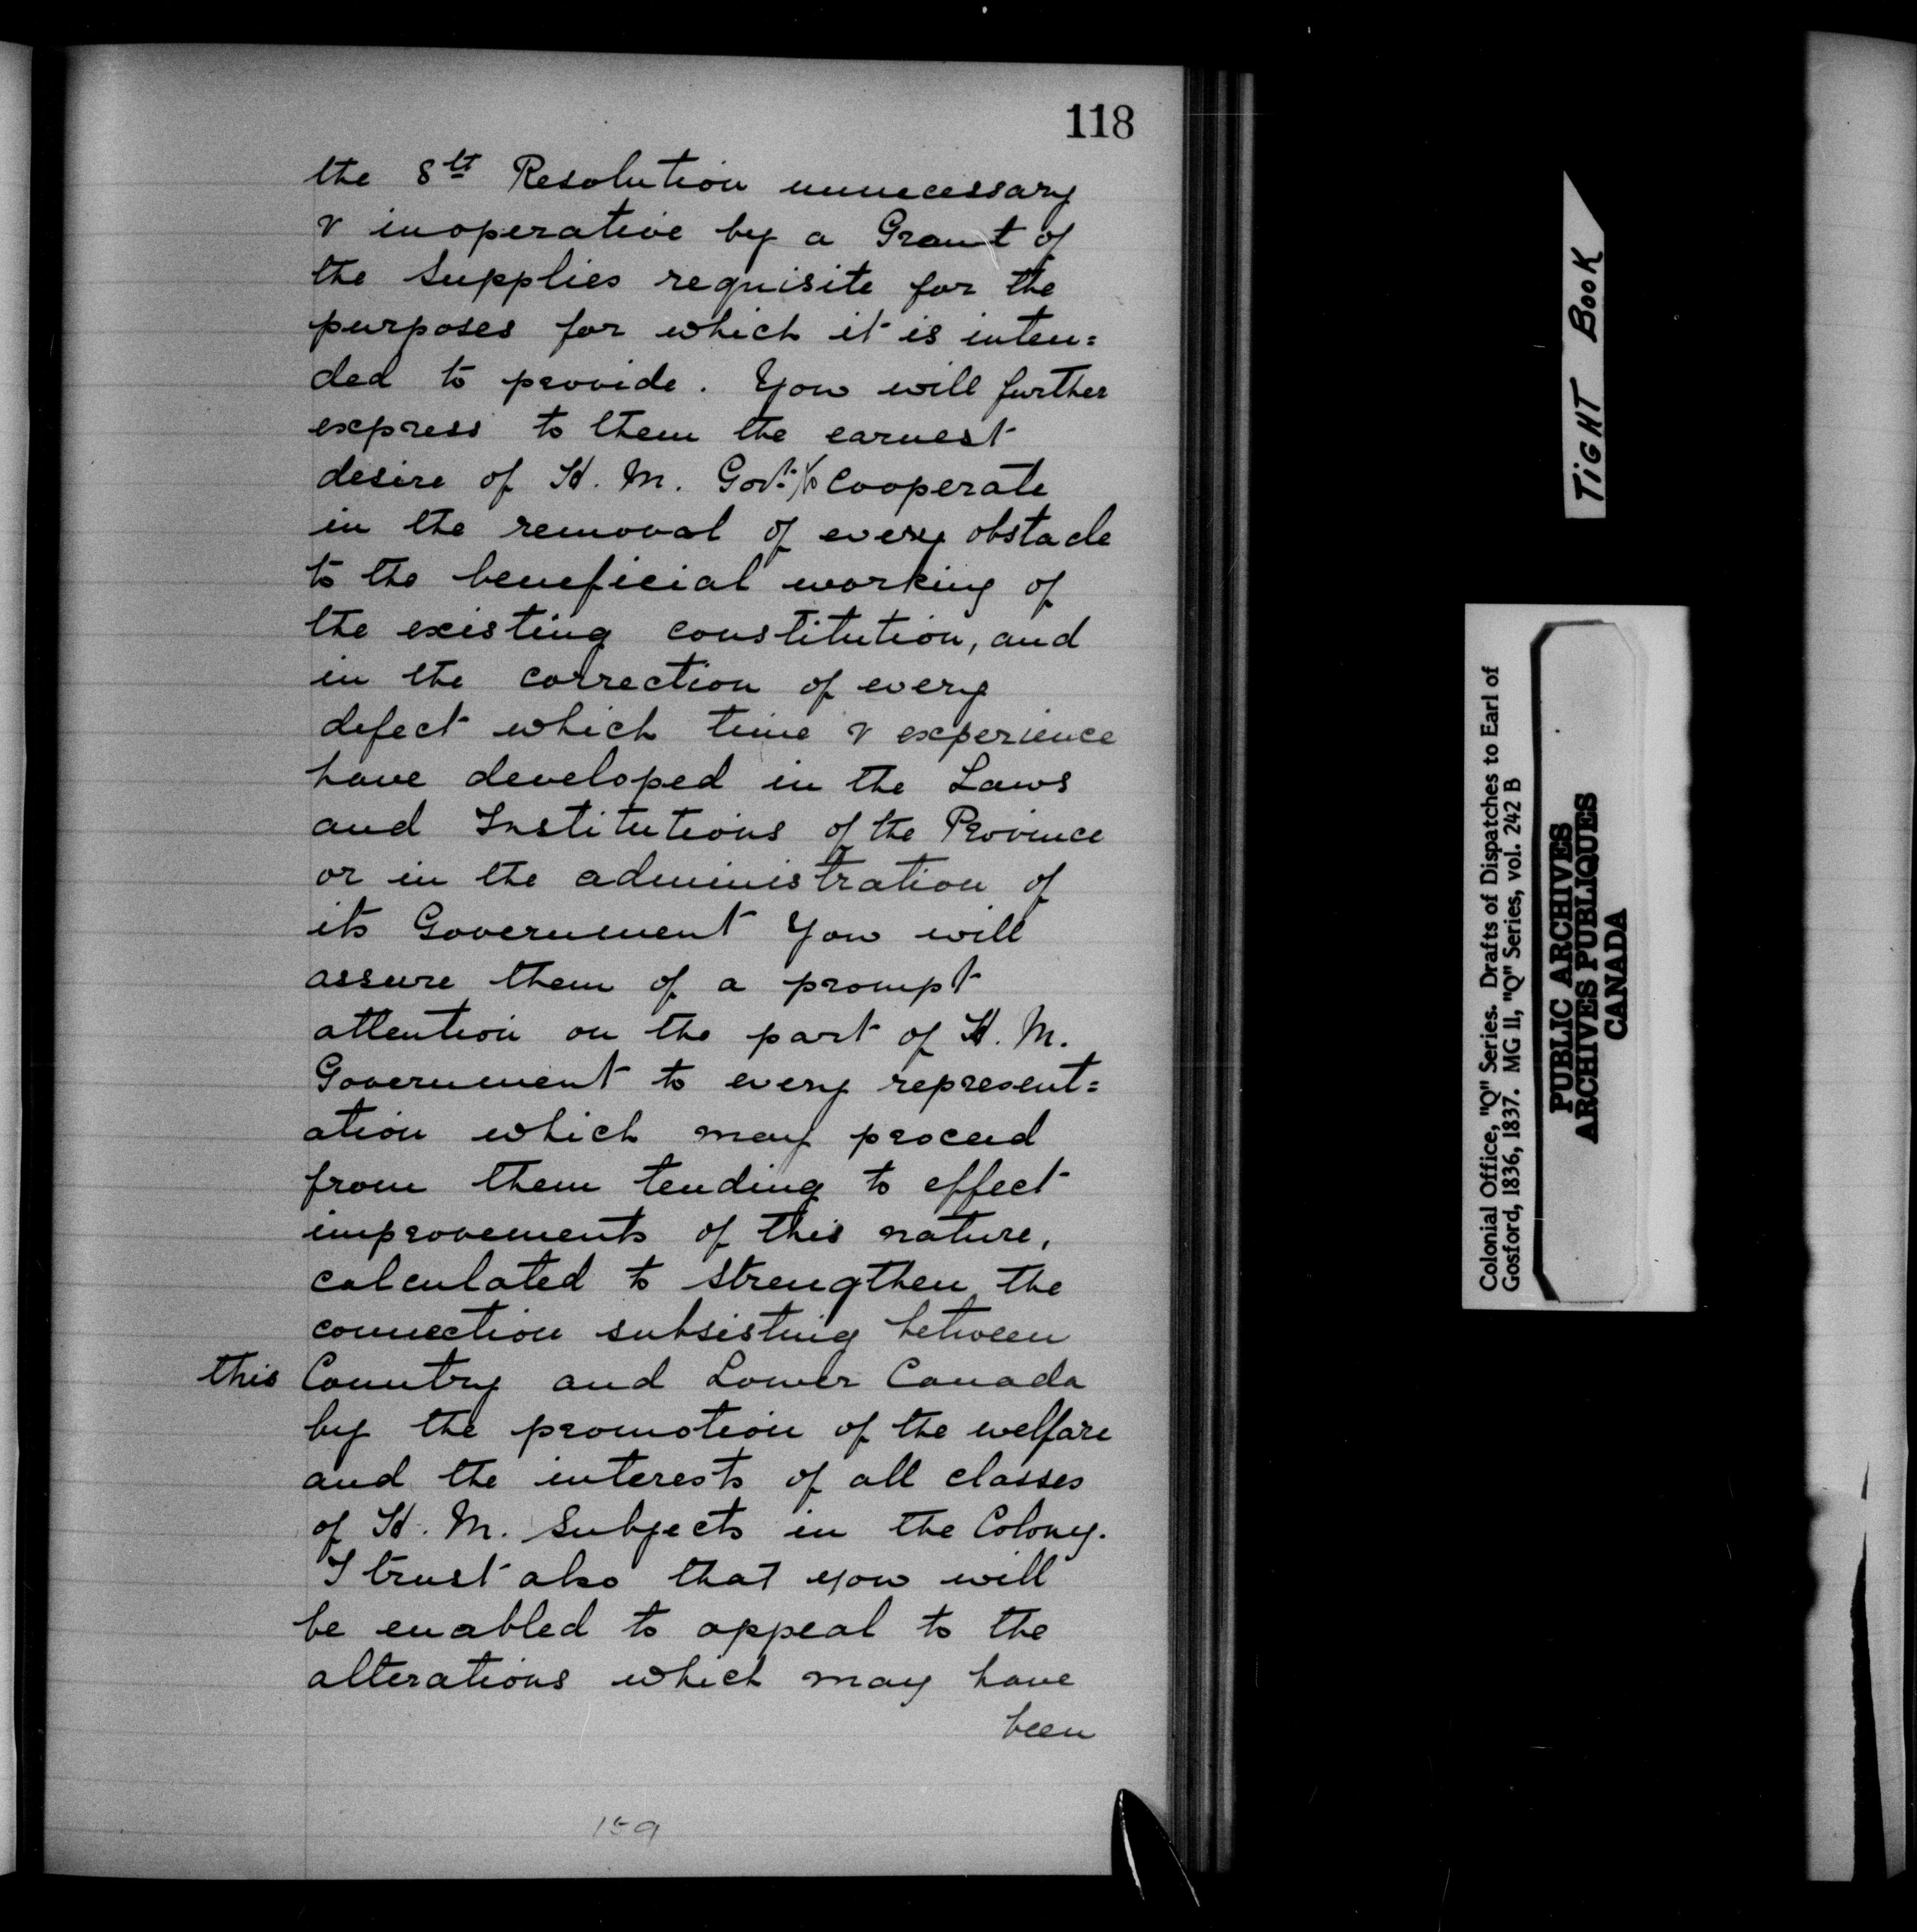 118
the 8th Resolution unnecessary
& inoperative by a Grant of
the supplies requisite for the
purposes for which it is inten=
ded to provide. You will further
express to them the earnest
desire of H. M. Govt. to cooperate
in the removal of every obstacle
to the beneficial working of
the existing constitution, and
in the correction of every
defect which time & experience
have developed in the Laws
and Institutions of the Province
or in the administration of
its Government You will
assure them of a prompt
attention on the part of H. M.
Government to every represent=
ation which may proceed
from them tending to effect
improvements of this nature,
calculated to strengthen the
connection subsisting between
this Country and Lower Canada
by the promotion of the welfare
and the interests of all classes
of H. M. Subjects in the Colony.
I trust also that you will
be enabled to appeal to the
alterations which may have
been
159
TIGHT BOOK
Colonial Office, "Q" Series. Drafts of Dispatches to Earl of
Gosford, 1836, 1837. MG 11, "Q" Series, vol. 242 B
PUBLIC ARCHIVES
ARCHIVES PUBLIQUES
CANADA